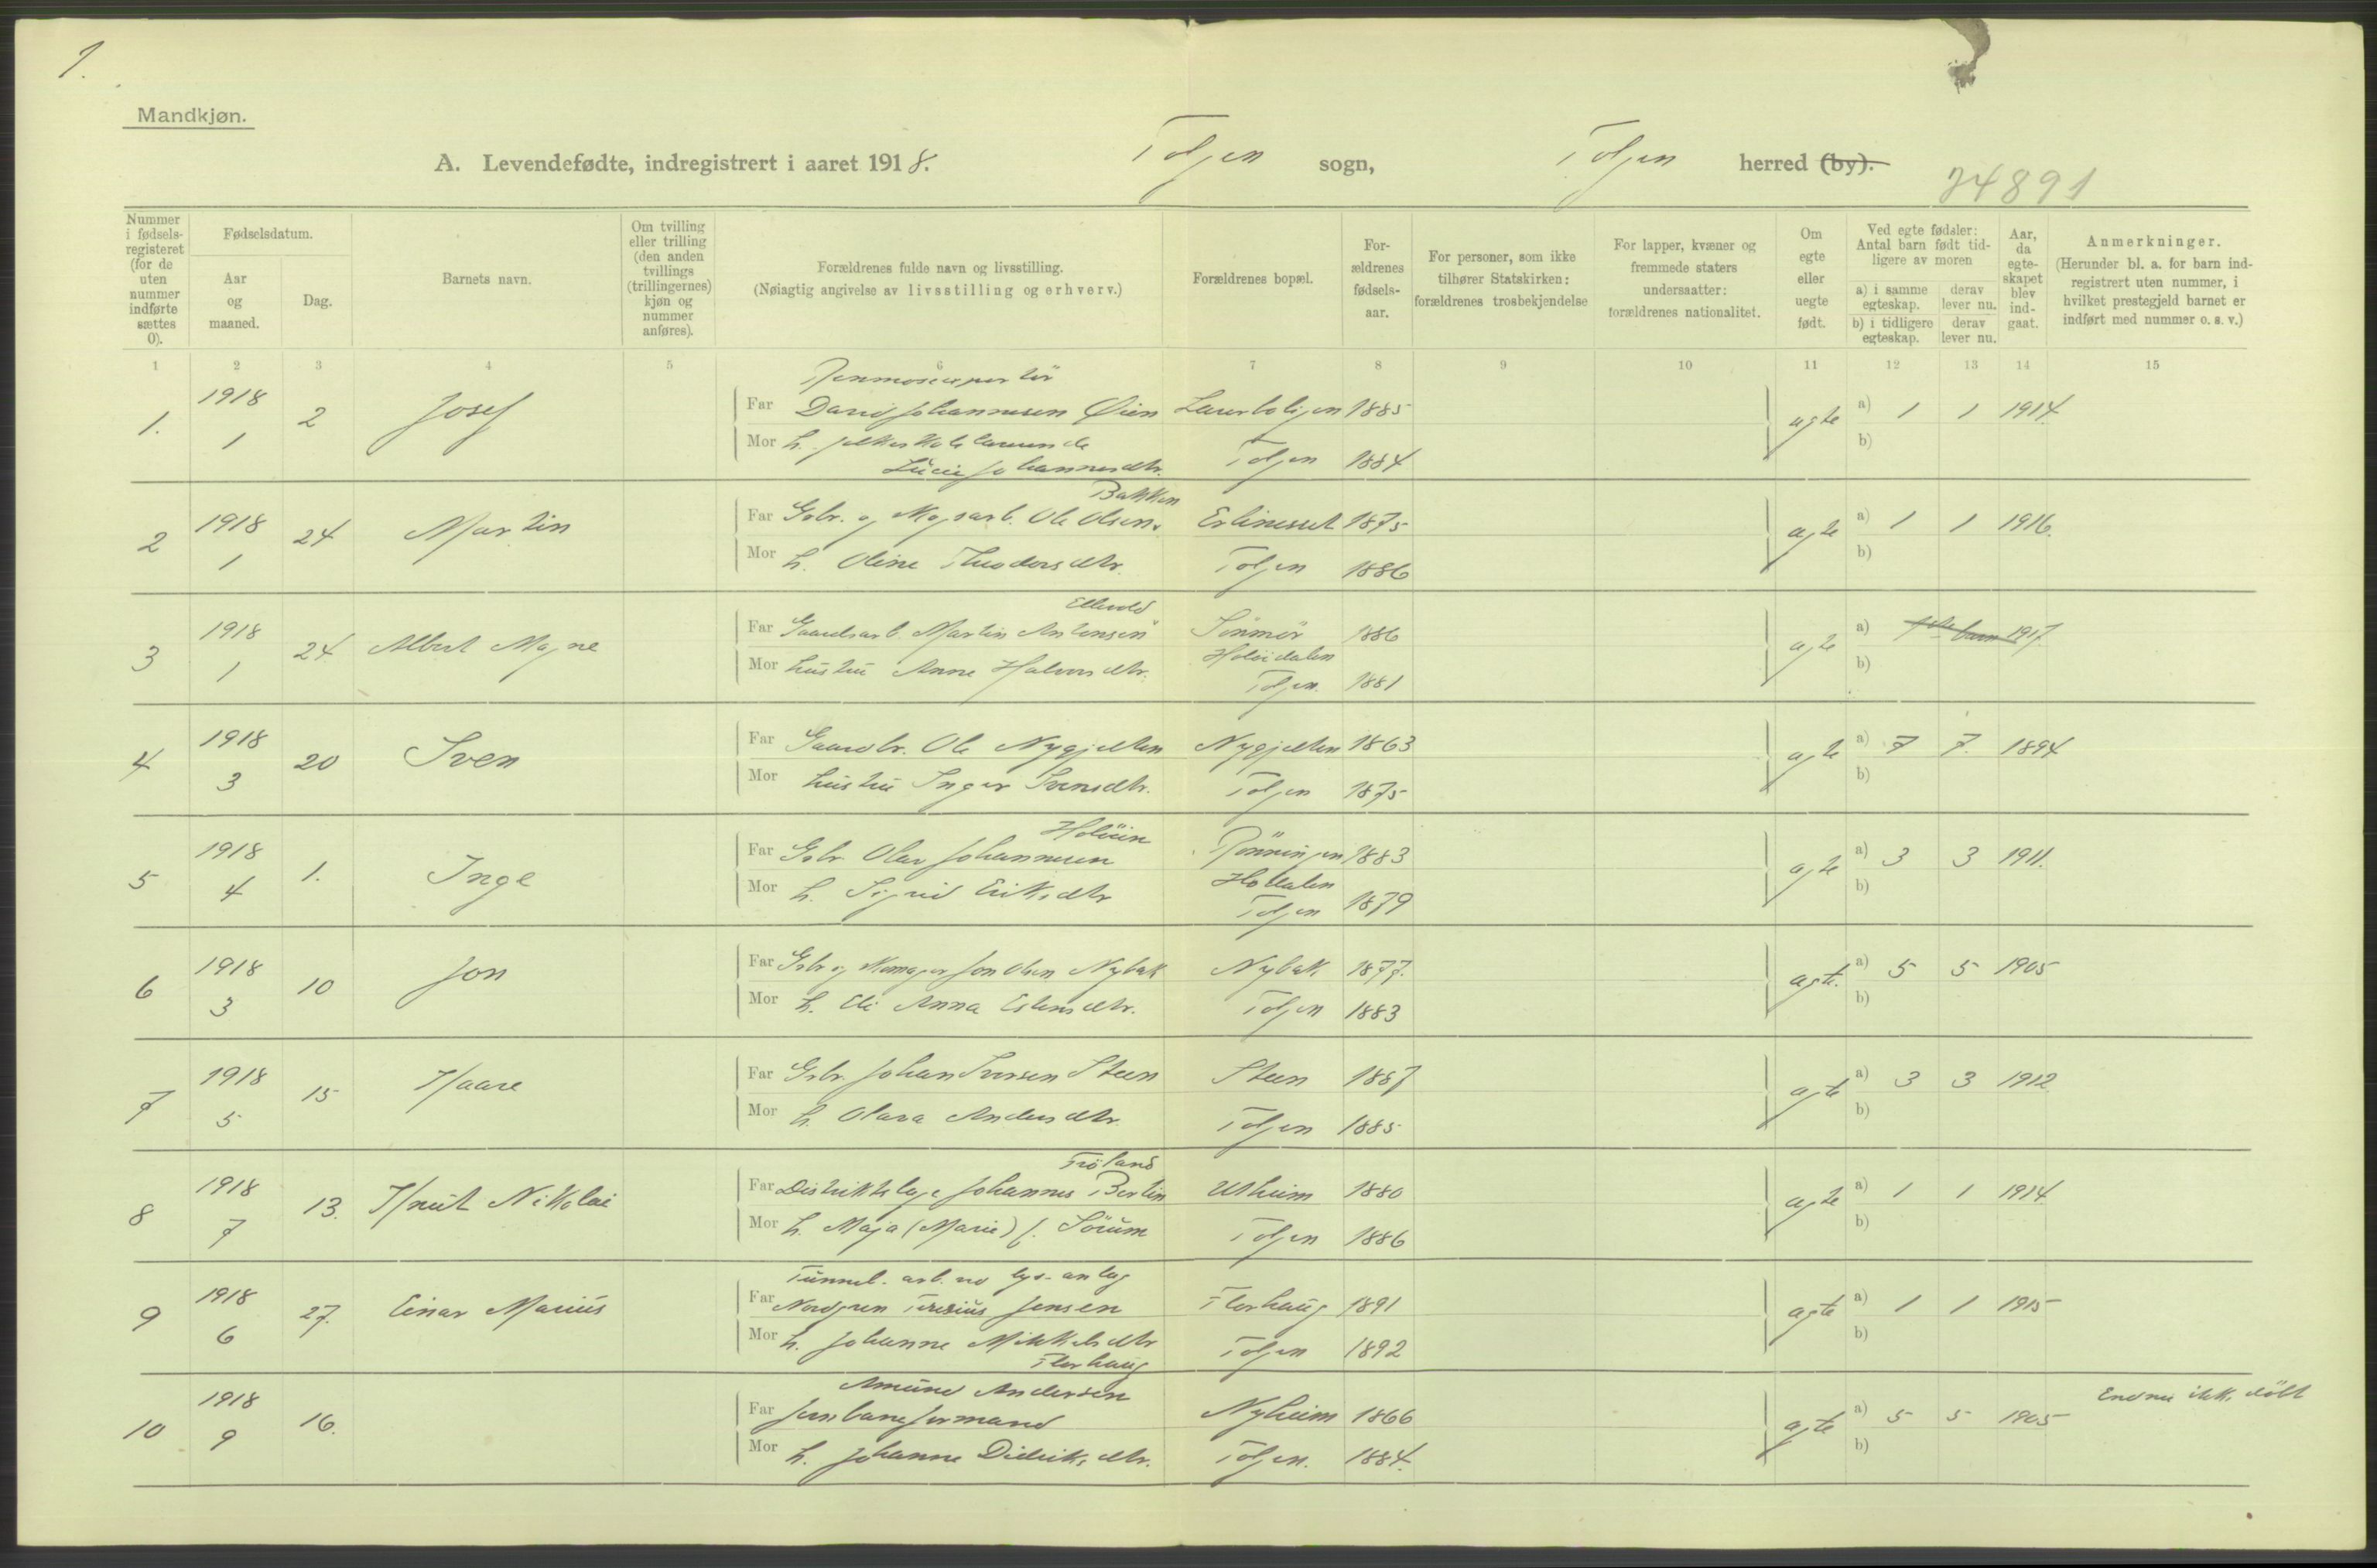 1.
Mandkjøn.
A. Levendefødte, indregistrert i aaret 1918. Tolgen sogn, Tolgen herred (by).
74891
Nummer i fødselsregisteret (for de uten nummer indførte sættes 0).
Fødselsdatum.
Aar og maaned.
Dag.
Barnets navn.
Om tvilling eller trilling (den anden tvillings (trillingernes) kjøn og nummer anføres).
Forældrenes fulde navn og livsstilling.
(Nøiagtig angivelse av livsstilling og erhverv.)
Forældrenes bopæl.
Forældrenes fødselsaar.
For personer, som ikke tilhører Statskirken: forældrenes trosbekjendelse
For lapper, kvæner og fremmede staters undersaatter: forældrenes nationalitet.
Om egte eller uegte født.
Ved egte fødsler: Antal barn født tidligere av moren
a) i samme egteskap. derav lever nu.
b) i tidligere egteskap. derav lever nu.
Aar, da egteskapet blev indgaat.
Anmerkninger.
(Herunder bl. a. for barn indregistrert uten nummer, i hvilket prestegjeld barnet er indført med nummer o. s. v.)
1 2 3 4 5 6 7 8 9 10 11 12 13 14 15
1. 1918 1 2 Josef
Far David Johannesen Øien 1885 egte a) 1 1 1914.
Mor h. Tolgen 1884 b)
Lucie Johannesdtr.
Bakken
2 1918 1 24 Martin
Far Gbr. og Ole Olsen 1875 egte a) 1 1 1916.
Mor h. Oline Theodorsdtr. Tolgen 1886 b)
Ellevold
3 1918 1 24 Albert Magne
Far Gaardsarb. Martin Antonsen 1886 egte a) 1ste barn 1917.
Mor hustru Anne Halvorsdtr. Holöidalen Tolgen. 1881 b)
4 1918 3 20 Sven
Far Gaardbr. Ole Nygjelten Nygjelten 1863 egte a) 7 7. 1894
Mor hustru Inger Svensdtr. Tolgen 1875 b)
Holöien
5 1918 4 1. Inge
Far Gbr. Olav Johannesen Rönningen 1883 egte a) 3 3 1911.
Mor h. Sigrid Eriksdtr Hodalen Tolgen 1879 b)
6 1918 3 10 Jon
Far Gbr og skomager Jon Olsen Nybak Nybak 1877. egte. a) 5 5 1905
Mor h. Eli Anna Estensdtr. Tolgen 1883 b)
7 1918 5 15 Kaare
Far Gbr. Johan Iversen Steen Steen 1887 egte a) 3 3 1912
Mor h. Olava Andersdtr. Tolgen 1885 b)
Fröland
8 1918 7 13. Knut Nikolai
Far Distriktslæge Johannes Bertin Utheim 1880 egte a) 1 1 1914
Mor h. Maja (Marie) f. Sörum Tolgen 1886 b)
Tunnel. arb. ved lys-anlæg
9 1918 6 27. Einar Marius
Far Nordgren Jensen Florhaug 1891 egte a) 1 1 1915
Mor h. Johanne Mikkelsdtr Tolgen 1892 b)
Florhaug
Amund Andersen
10 1918 9 16.
Far Jernbaneformand Nyheim 1866 egte a) 5 5 1905 Endnu ikke döbt
Mor h. Johanne Didriksdtr. Tolgen. 1884. b)